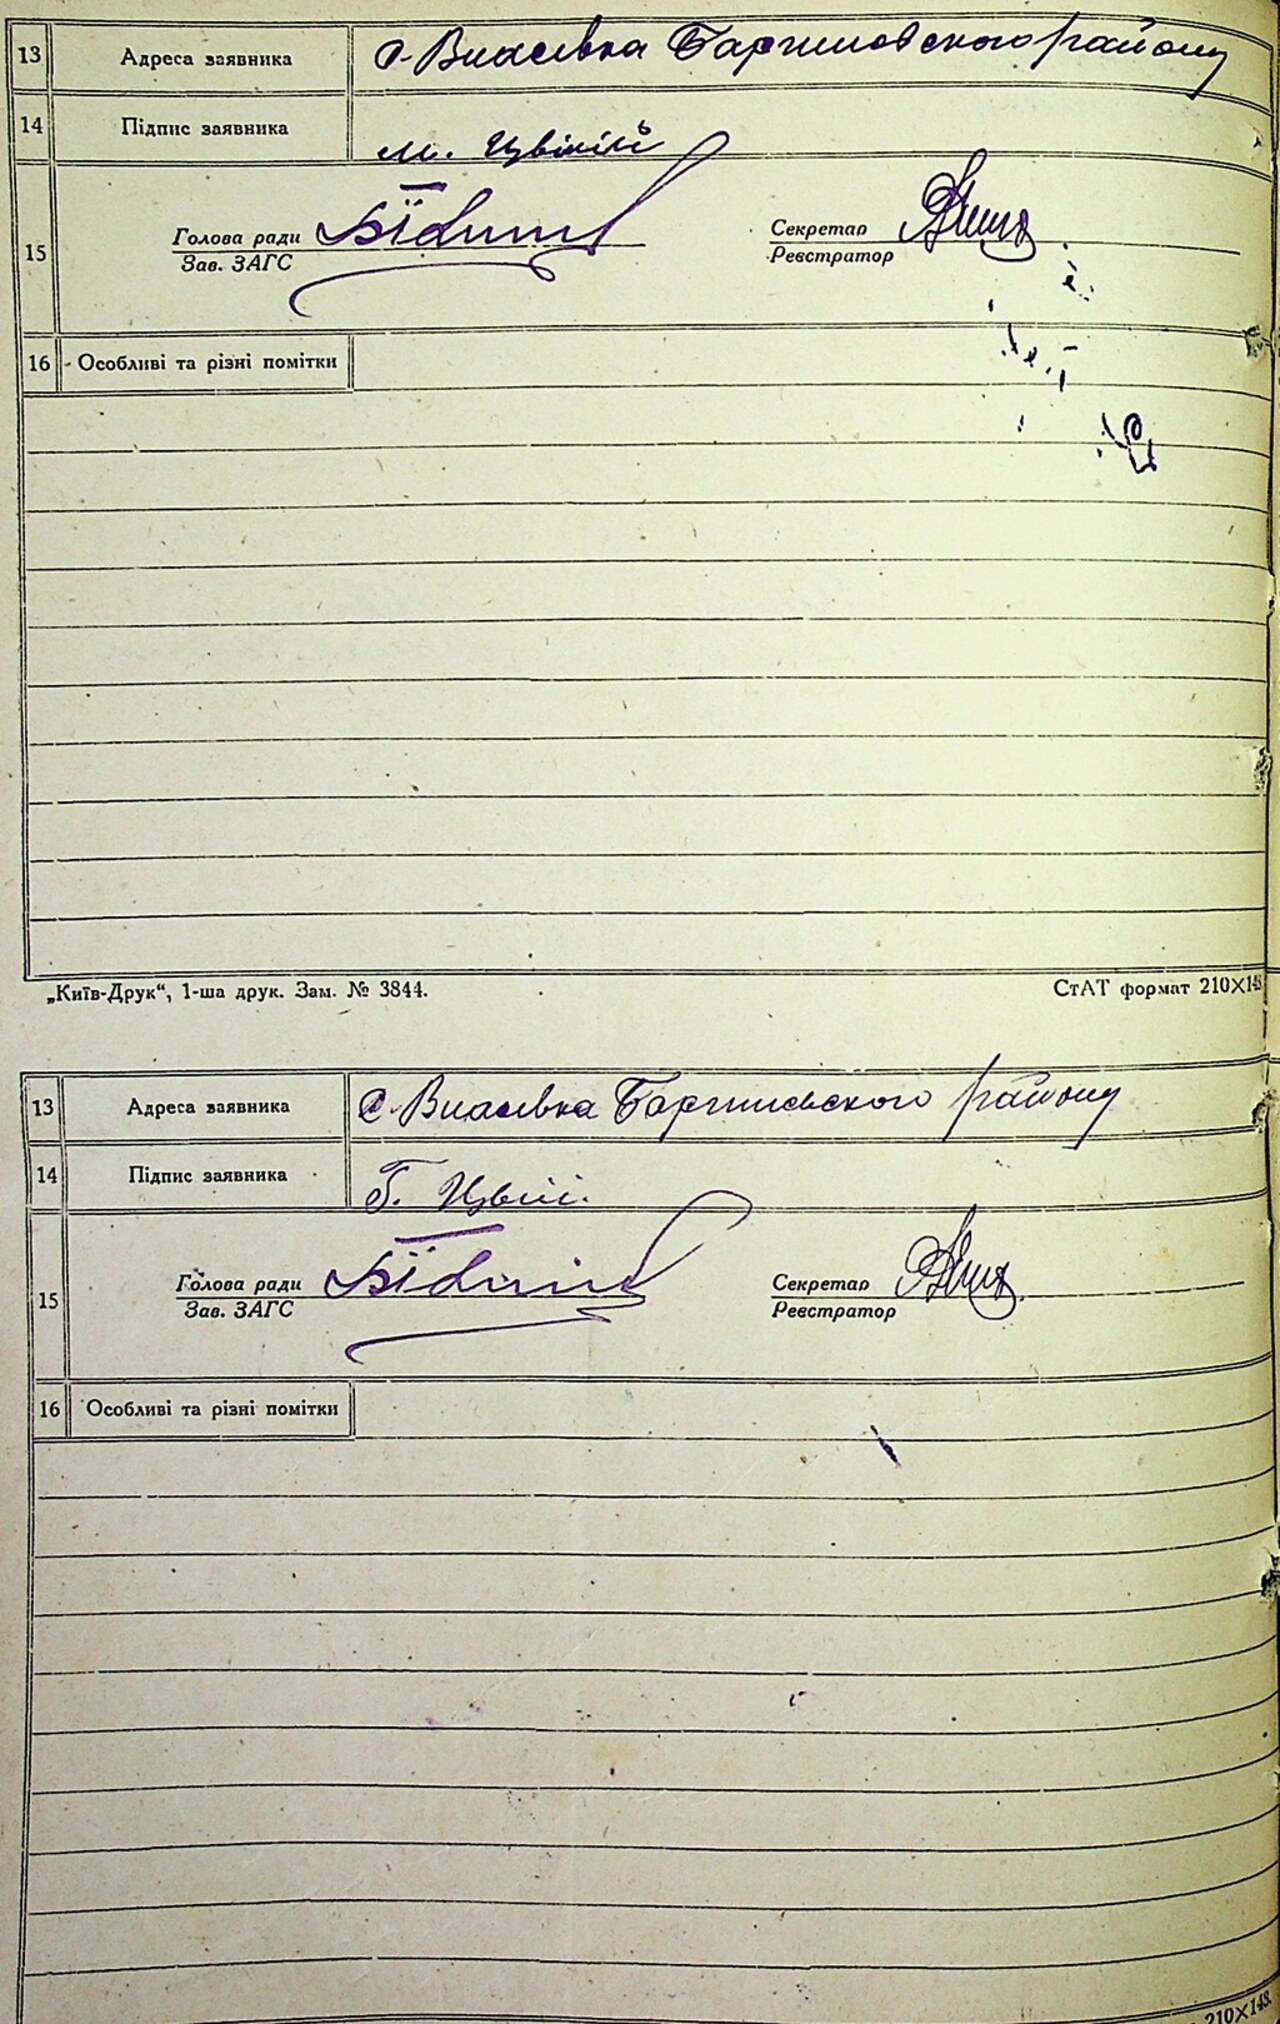 13 Адреса заявника с. Власівка Баришевського району
14 Підпис заявника М. Цвілій
Голова ради Секретар
15 Зав. ЗАГС Реєстратор
16 Особливі та різні помітки
„Київ-Друк“, 1-ша друк. Зам. № 3844. СтАТ формат 210×148
13 Адреса заявника с. Власівка Баришевського району
14 Підпис заявника Г. Цвілі.
Голова ради Секретар
15 Зав. ЗАГС Реєстратор
16 Особливі та різні помітки
210×148.